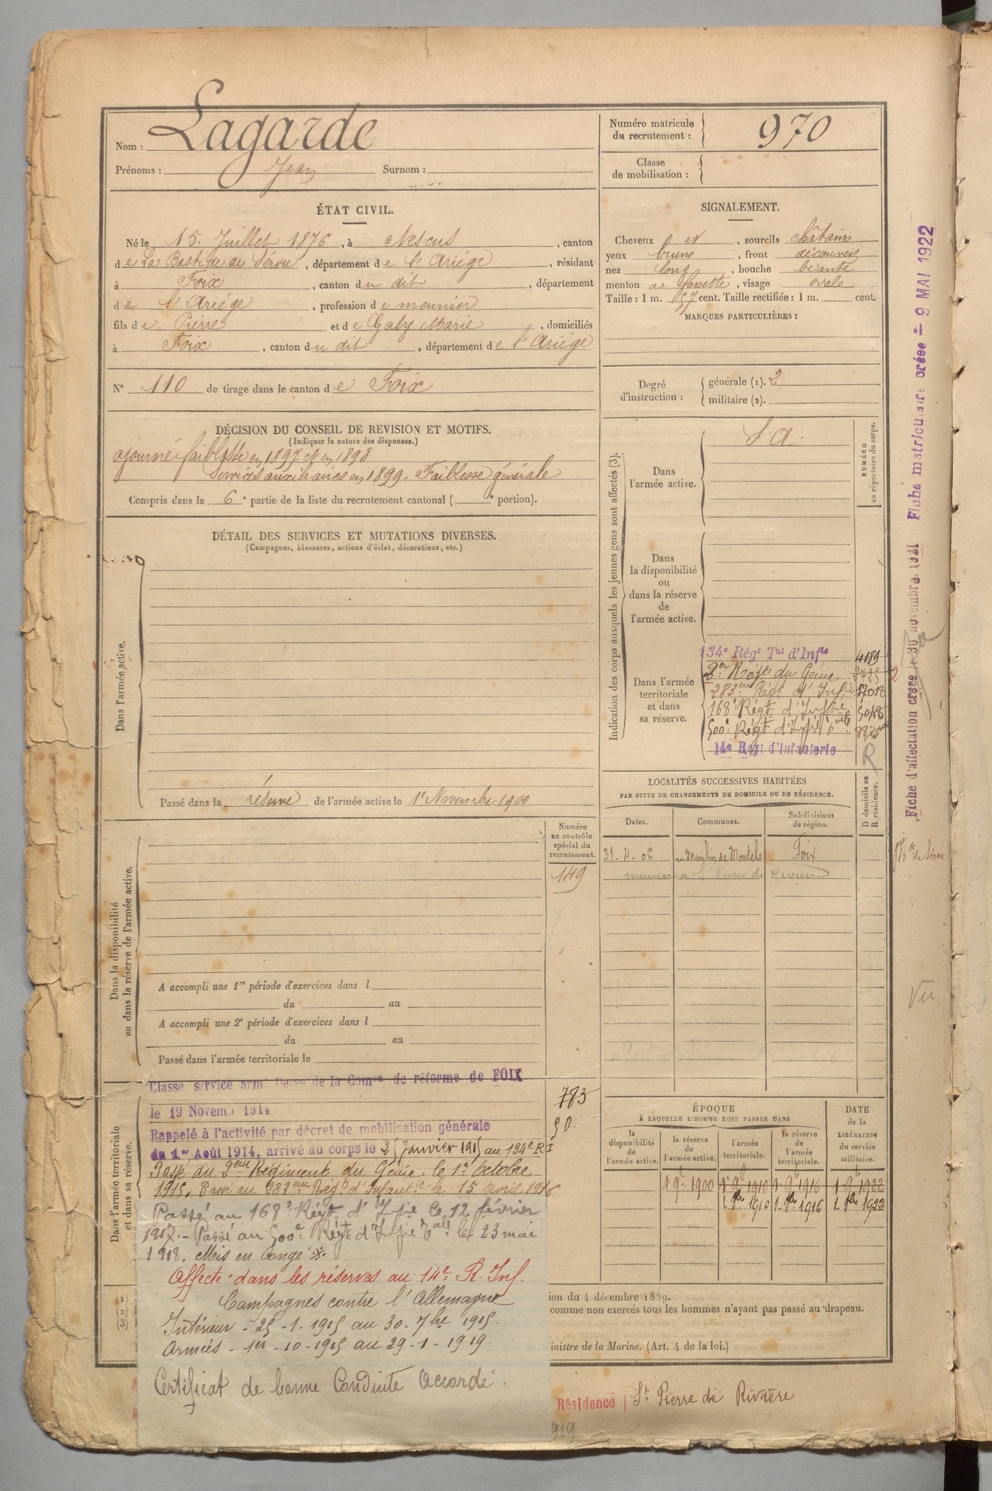 Nom : Lagarde
Prénoms : Jean Surnom :
Numéro matricule du recrutement : 970
Classe de mobilisation :
ÉTAT CIVIL.
Né le 15 Juillet 1876, à Nescus, canton
de La Bastide de Sérou, département de l'Ariège, résidant
à Foix, canton du dit, département
de l'Ariège, profession de meunier
fils de Pierre et de Galy Marie, domiciliés
à Foix, canton du dit, département de l'Ariège
N° 110 de tirage dans le canton de Foix
SIGNALEMENT.
Cheveux et, sourcils châtain
yeux bruns, front découvert
nez long, bouche béante
menton à fossette, visage ovale
Taille : 1 m. 57 cent. Taille rectifiée : 1 m. cent.
MARQUES PARTICULIÈRES :
Degré d'instruction :
générale (1). 2
militaire (2).
DÉCISION DU CONSEIL DE REVISION ET MOTIFS.
(Indiquer la nature des dispenses.)
ajourné faiblesse en 1897 et en 1898
Services auxiliaires en 1899. Faiblesse générale
Compris dans la 6e partie de la liste du recrutement cantonal ( e portion).
DÉTAIL DES SERVICES ET MUTATIONS DIVERSES.
(Campagnes, blessures, actions d'éclat, décorations, etc.)
Dans l'armée active.
Passé dans la réserve de l'armée active le 1er Novembre 1900
Dans la disponibilité
ou dans la réserve de l'armée active.
Numéro au contrôle spécial du recrutement.
149
A accompli une 1re période d'exercices dans l
du au
A accompli une 2e période d'exercices dans l
du au
Passé dans l'armée territoriale le
Dans l'armée territoriale
et dans sa réserve.
de la Comon de réforme de FOIX
le 19 Novemb 1914
Rappelé à l'activité par décret de mobilisation générale
du 1er Août 1914, arrivé au corps le 25 Janvier 1915 au 134e RI
Passé au 2ème Régiment du Génie le 1er Octobre
1915. Passé au 283ème Régt d'Infantie le 15 Avril 1916
Passé au 168e Régt d'Infie le 12 février
1917. - Passé au 500e Régt d'Infie Tale le 23 mai
1918. Mis en congé
Affecté dans les réserves au 14e R. Inf.
Campagnes contre l'Allemagne
Intérieur - 25-1-1915 au 30-7bre 1915.
Armées - 1er-10-1915 au 29-1-1919.
Certificat de bonne Conduite Accordé.
783
Indication des corps auxquels les jeunes gens sont affectés (3).
Dans l'armée active.
S A.
NUMÉRO au répertoire du corps.
Dans la disponibilité ou dans la réserve de l'armée active.
Dans l'armée territoriale et dans sa réserve.
134e Régt Tal d'Infie 4189
2e Régt du Génie
283ème Régt d'Infie
168e Régt d'Infie
500e Régt d'Infie Tale
14e Régt d'Infanterie
R
LOCALITÉS SUCCESSIVES HABITÉES
PAR SUITE DE CHANGEMENTS DE DOMICILE OU DE RÉSIDENCE.
D domicile ou R résidence.
Dates. Communes. Subdivisions de région.
au Moulin de Foix
ÉPOQUE
À LAQUELLE L'HOMME DOIT PASSER DANS
la disponibilité de l'armée active.
la réserve de l'armée active.
l'armée territoriale.
la réserve de l'armée territoriale.
DATE DE LA LIBÉRATION du service militaire.
1 9 1900 1 9 1910 1 9 1916 1 9 1922
ion du 4 décembre 1889.
comme non exercés tous les hommes n'ayant pas passé au drapeau.
inistre de la Marine. (Art. 4 de la loi.)
Résidence St Pierre de Rivière
Fiche d'affectation créée le 30 novembre 1921 Fiche matriculaire créée = 9 MAI 1922
Vu